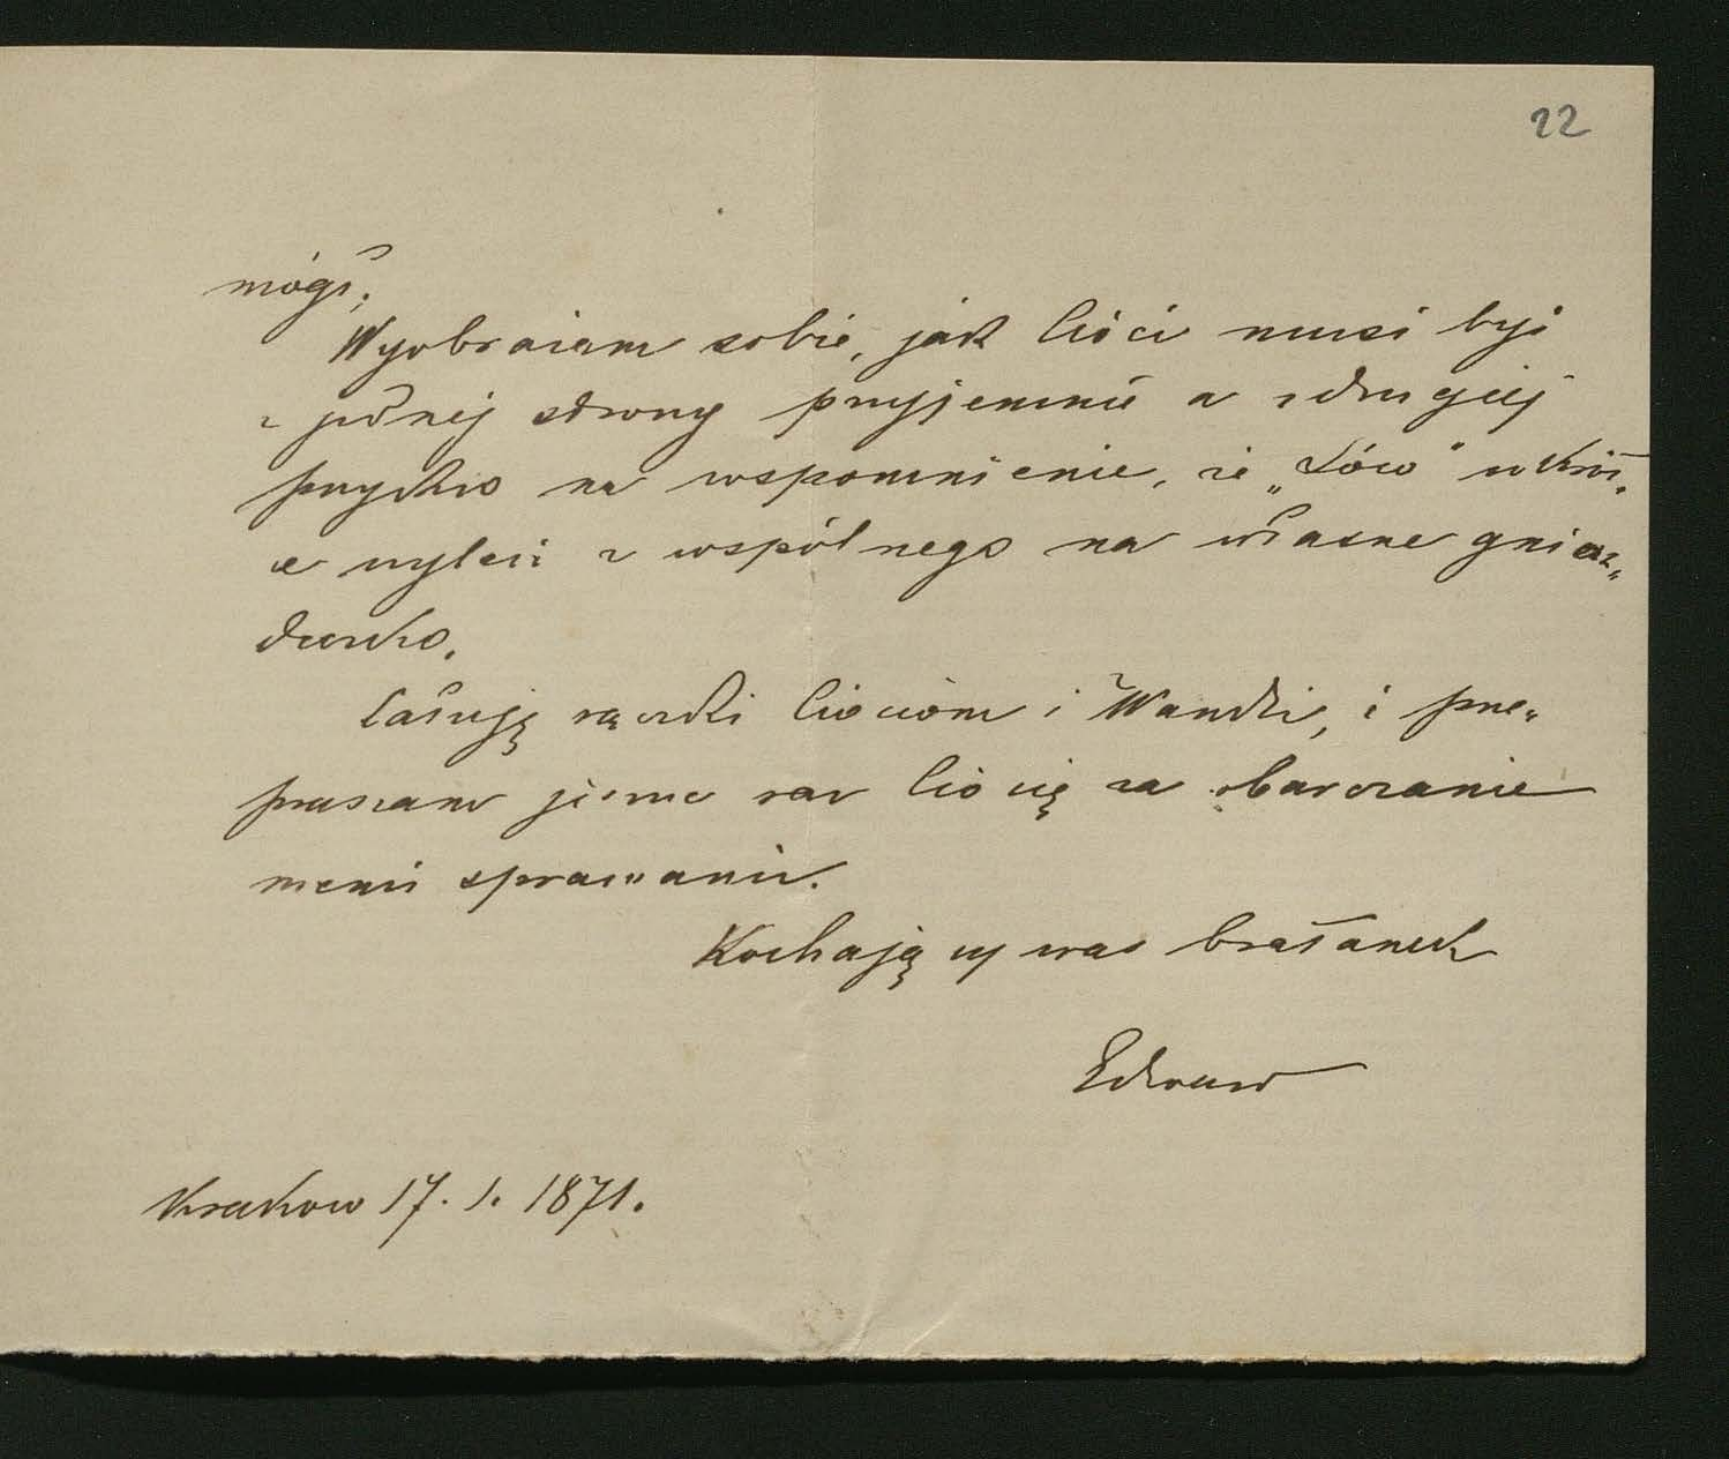 22
mógł.
Wyobrażam sobie, jak Cioci musi być
z jednej strony przyjemnie a z drugiej
przykro na wspomnienie, że „Lów” wkrót„
ce wyleci z wspólnego na własne gniaz„
deczko.
Całuję rączki Ciociom i Wandzi, i prze„
praszam jeszcze raz Ciocię za obarczanie
memi sprawami.
Kochający was bratanek
Edward
Krakow 17. 1. 1871.